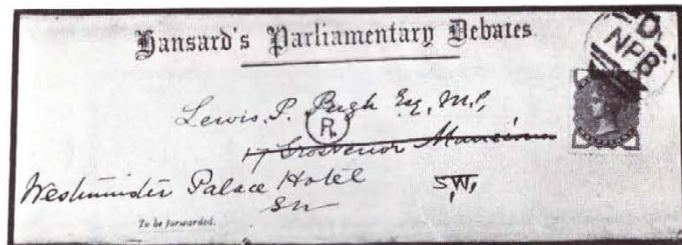 Hansard's Parliamentary Debates
NPB
Lewis P. Pugh Esq, M.P,
R.
17 Grosvenor Mansions
Westminster Palace Hotel
S.W,
SW
To be forwarded.